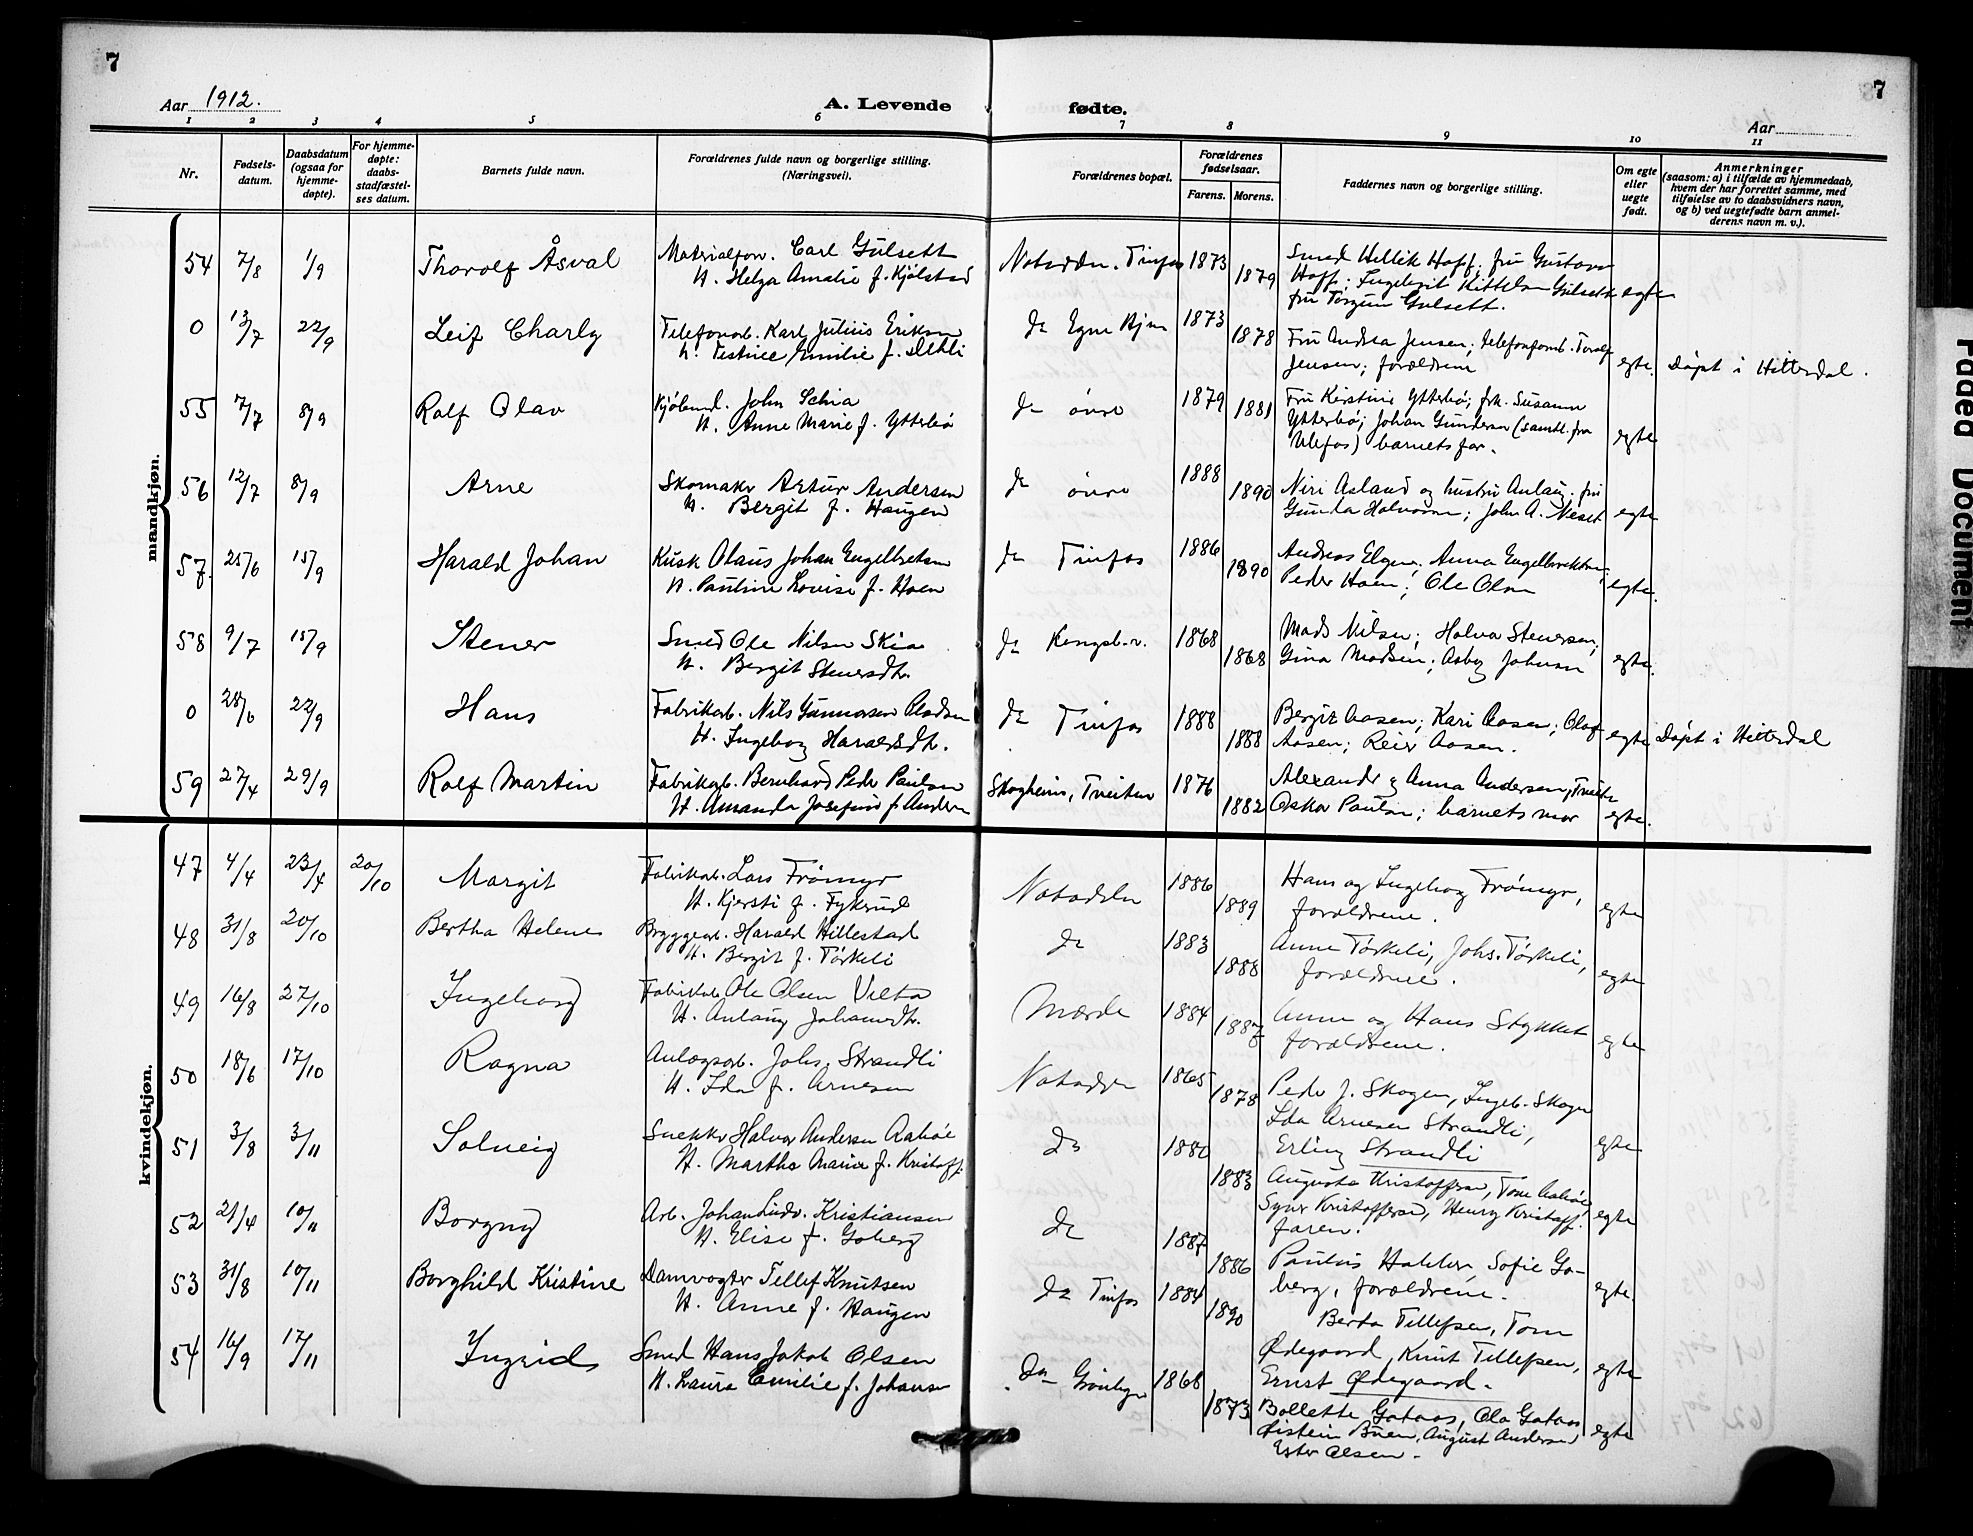 7
7
Aar 1912.
A. Levende fødte.
Aar
1 2 3 4 5 6 7 8 9 10 11
Nr.
Fødsels-
datum.
Daabsdatum
(ogsaa for
hjemme-
døpte).
For hjemme-
døpte:
daabs-
stadfæstel-
ses datum.
Barnets fulde navn.
Forældrenes fulde navn og borgerlige stilling.
(Næringsvei).
Forældrenes bopæl.
Forældrenes
fødselsaar.
Farens. Morens.
Faddernes navn og borgerlige stilling.
Om egte
eller
uegte
født.
Anmerkninger
(saasom: a) i tilfælde av hjemmedaab,
hvem der har forrettet samme, med
tilføielse av to daabsvidners navn,
og b) ved uegtefødte barn anmel-
derens navn m. v.).
mandkjøn.
54 7/8 1/9 Thorolf Åsval Materialforv. Carl Gulsett Notodden. Tinfos 1873 Smed Hellik Hoff; fru Gustava
H. Helga Amalie f. Kjølstad 1879 Hoff; Ingeborg Kittelsen Gulsett egte
fru Torgun Gulsett.
0 13/7 22/9 Leif Charly Telefonarb. Karl Julius Eriksen do Egne Hjem 1873 Fru Andrea Jensen; telefonformd. Toralf
Emilie f. Dehli 1878 Jensen; forældrene egte. Døpt i Hitterdal.
55 7/7 8/9 Rolf Olav Kjøbmd. John Schia do øvre 1879 Fru Kirstine Ytterbø; frk. Susanne
H. Anne Marie f. Ytterbø 1881 Ytterbø; Johan Gundersen (samtl. fra
Ulefos) barnets far. egte
56 12/7 8/9 Arne Skomaker Artur Andersen do øvre 1888 Niri Aasland og hustru Anlaug; fru
H. Bergit f. Haugen 1890 Gunda Halvorsen; John A. Neset egte
57. 25/6 15/9 Harald Johan Kusk Olaus Johan Engelbretsen do Tinfos 1886 Andreas Elgen; Anna Engelbrektsen;
H. Pauline Lovise f. Hoen 1890 Peder Hoen; Ole Olsen egte.
58 9/7 15/9 Stener Smed Ole Nilsen Skia do Kongsb.v. 1868 Mads Nilsen; Halvor Stenersen;
H. Bergit Stenersdtr. 1868 Gina Madsen; Asbj Johnsen egte.
0 28/6 22/9 Hans Fabrikarb. Nils Gunnarsen do Tinfos 1888 Bergit Aasen; Kari Aasen; Olaf
H. Ingeborg Haraldsdtr. 1888 Aasen; Reier Aasen. egte Døpt i Hitterdal
59 27/4 29/9 Rolf Martin Fabrikarb. Bernhard Peder Paulsen Skogheim, Tveiten 1876 Alexander og Anna Andersen, Tveiten
H. Amanda Josefine f. Andersen 1882 Oskar Paulsen; barnets mor egte.
kvindekjøn.
47 4/4 23/4 20/10 Margit Fabrikarb. Lars Frømyr Notodden 1886 Hans og Ingeborg Frømyr,
H. Kjersti f. Fykerud 1889 forældrene. egte
48 31/8 20/10 Bertha Helene Bryggearb. Harald Hillestad do 1883 Anne Tørkeli, Johs. Tørkeli,
H. Bergit f. Tørkeli 1888 forældrene. egte
49 16/8 27/10 Ingeborg Fabrikarb. Ole Olsen Velta Mærde 1884 Anne og Hans Stykket
H. Anlaug Johannesdtr. 1887 forældrene. egte
50 18/6 17/10 Ragna Anlægsarb. Johs. Strandli Notodden 1865 Peder J. Skogen, Ingeb. Skogen
H. Ida f. Arnesen 1878 Ida Arnesen Strandli,
Erling Strandli egte
51 3/8 3/11 Solveig Snekker Halvor Andersen Aabøe do 1880 Augusta Kristoffersen, Tone Aabøe,
H. Martha Marie f. Kristoff. 1883 Syver Kristoffersen, Henry Kristoff.
faren. egte
52 21/4 10/11 Borgny Arb. Johan Ludv. Kristiansen do 1887 Paulus Hakker, Sofie Go-
H. Elise f. Goberg 1886 berg, forældrene. egte.
53 31/8 10/11 Borghild Kristine Damvogter Tellef Knutsen do Tinfos 1884 Berta Tellefsen, Tom
H. Anne f. Haugen 1890 Ødegaard, Knut Tellefsen,
Ernst Ødegaard. egte
54 16/9 17/11 Ingrid Smed Hans Jakob Olsen do Grønbyen 1868 Bollette Gataas, Ola Gataas
H. Laura Emilie f. Johansen 1873 Øistein Buen, August Andersen
Ester Olsen. egte
Faded Document